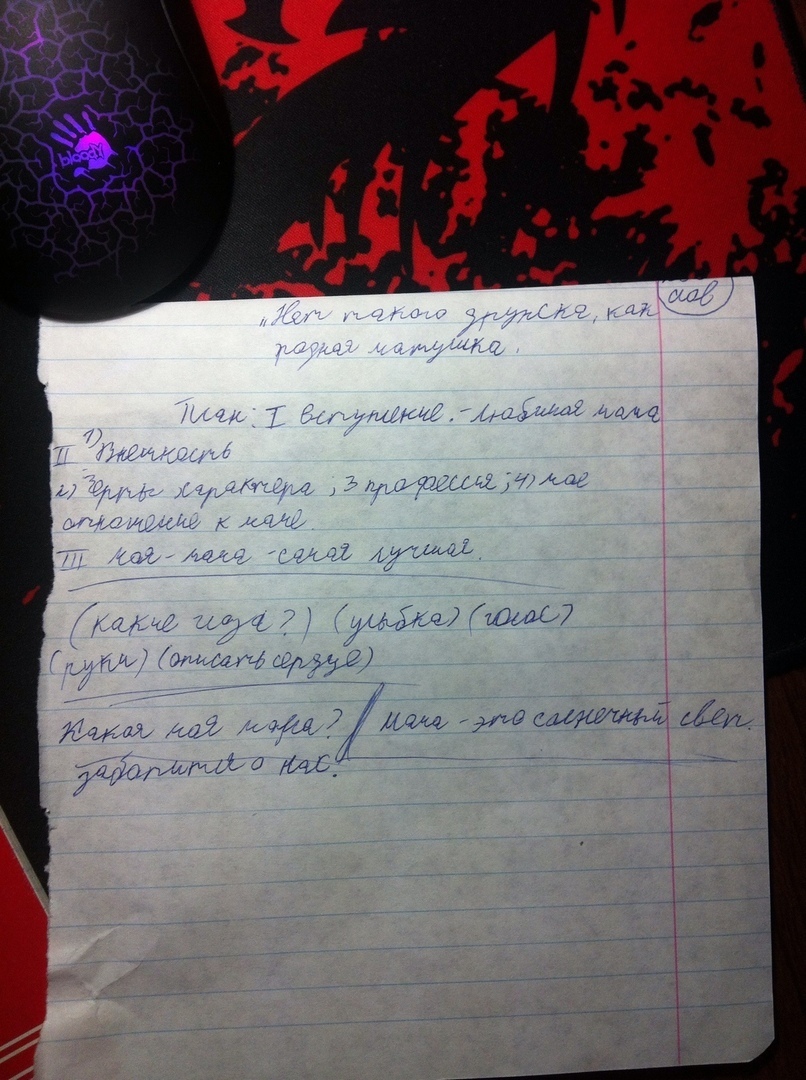 bloody
слов
„Нет такого дружка, как
родная матушка.
План: I вступление. - любимая мама
II 1) Внешность
2) Черты характера; 3 профессия; 4) мое
отношение к маме.
III моя - мама - самая лучшая.
(какие глаза?) (улыбка) (голос)
(руки) (описать сердце)
Какая моя мама? // мама - это солнечный свет.
заботится о нас.